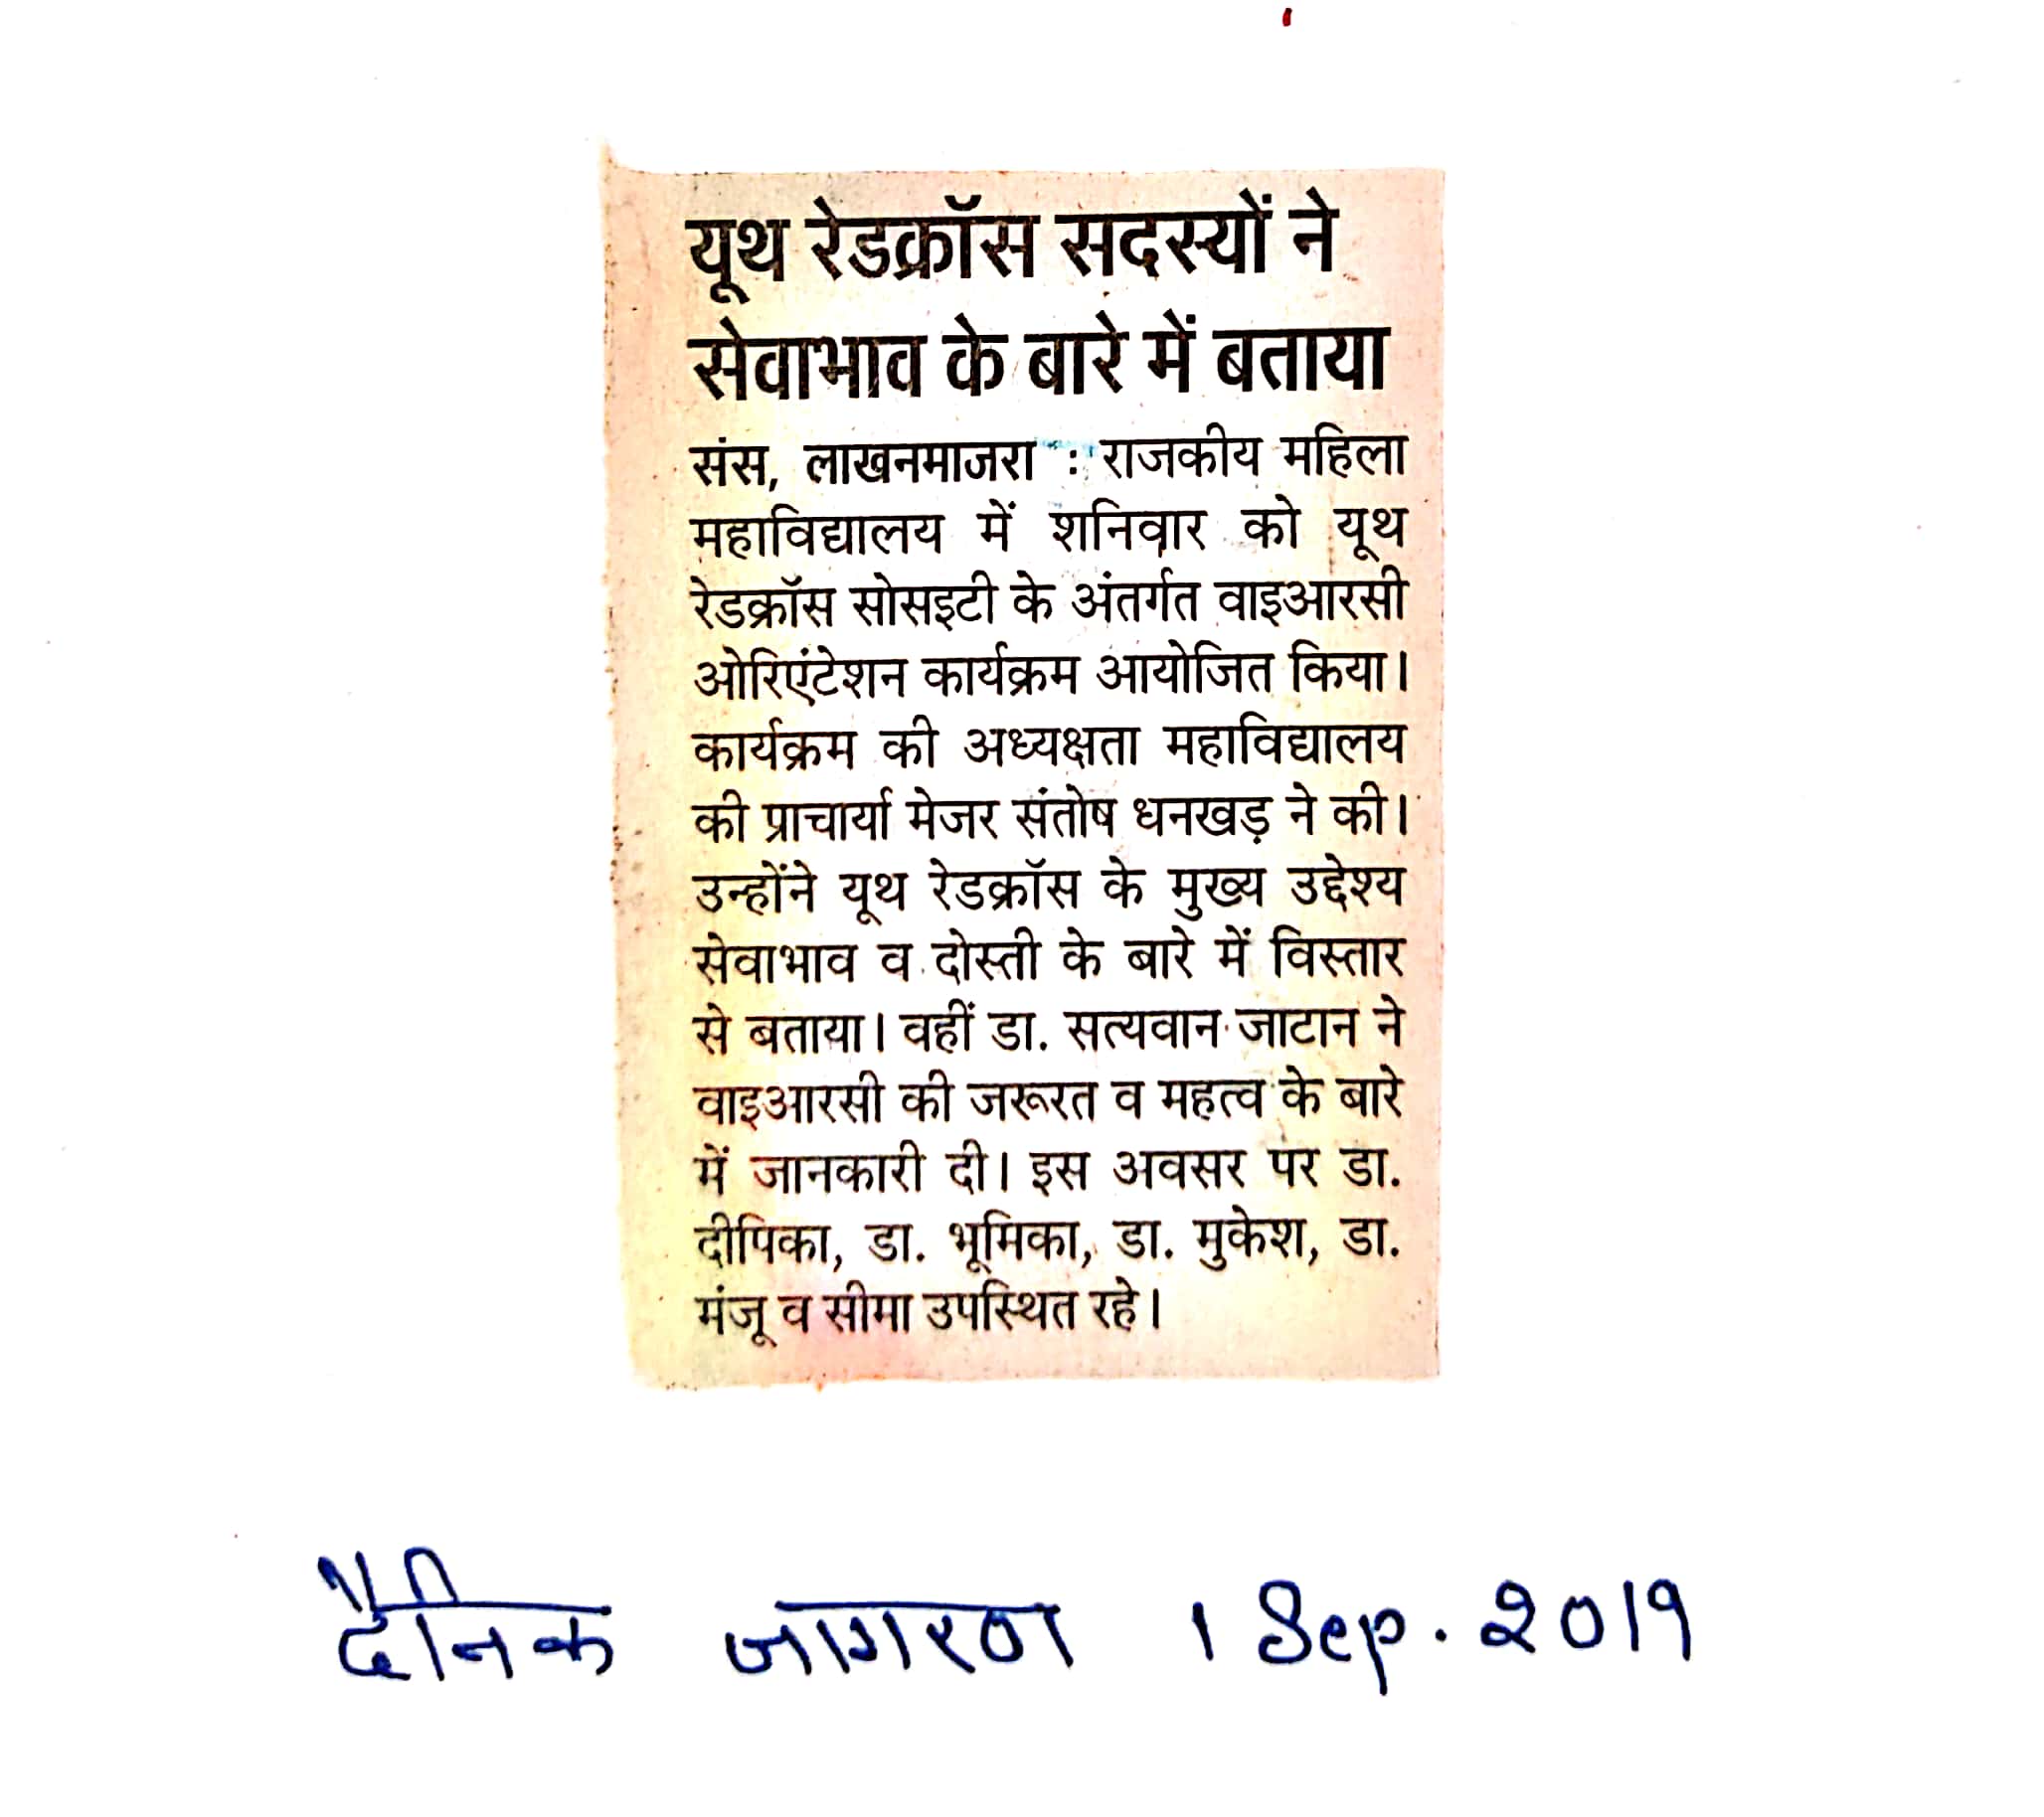 यूथ रेडक्रॉस सदस्यों ने
सेवाभाव के बारे में बताया
संस, लाखनमाजरा : राजकीय महिला
महाविद्यालय में शनिवार को यूथ
रेडक्रॉस सोसइटी के अंतर्गत वाइआरसी
ओरिएंटेशन कार्यक्रम आयोजित किया।
कार्यक्रम की अध्यक्षता महाविद्यालय
की प्राचार्या मेजर संतोष धनखड़ ने की।
उन्होंने यूथ रेडक्रॉस के मुख्य उद्देश्य
सेवाभाव व दोस्ती के बारे में विस्तार
से बताया। वहीं डा. सत्यवान जाटान ने
वाइआरसी की जरूरत व महत्व के बारे
में जानकारी दी। इस अवसर पर डा.
दीपिका, डा. भूमिका, डा. मुकेश, डा.
मंजू व सीमा उपस्थित रहे।
दैनिक जागरण 1 Sep. 2019